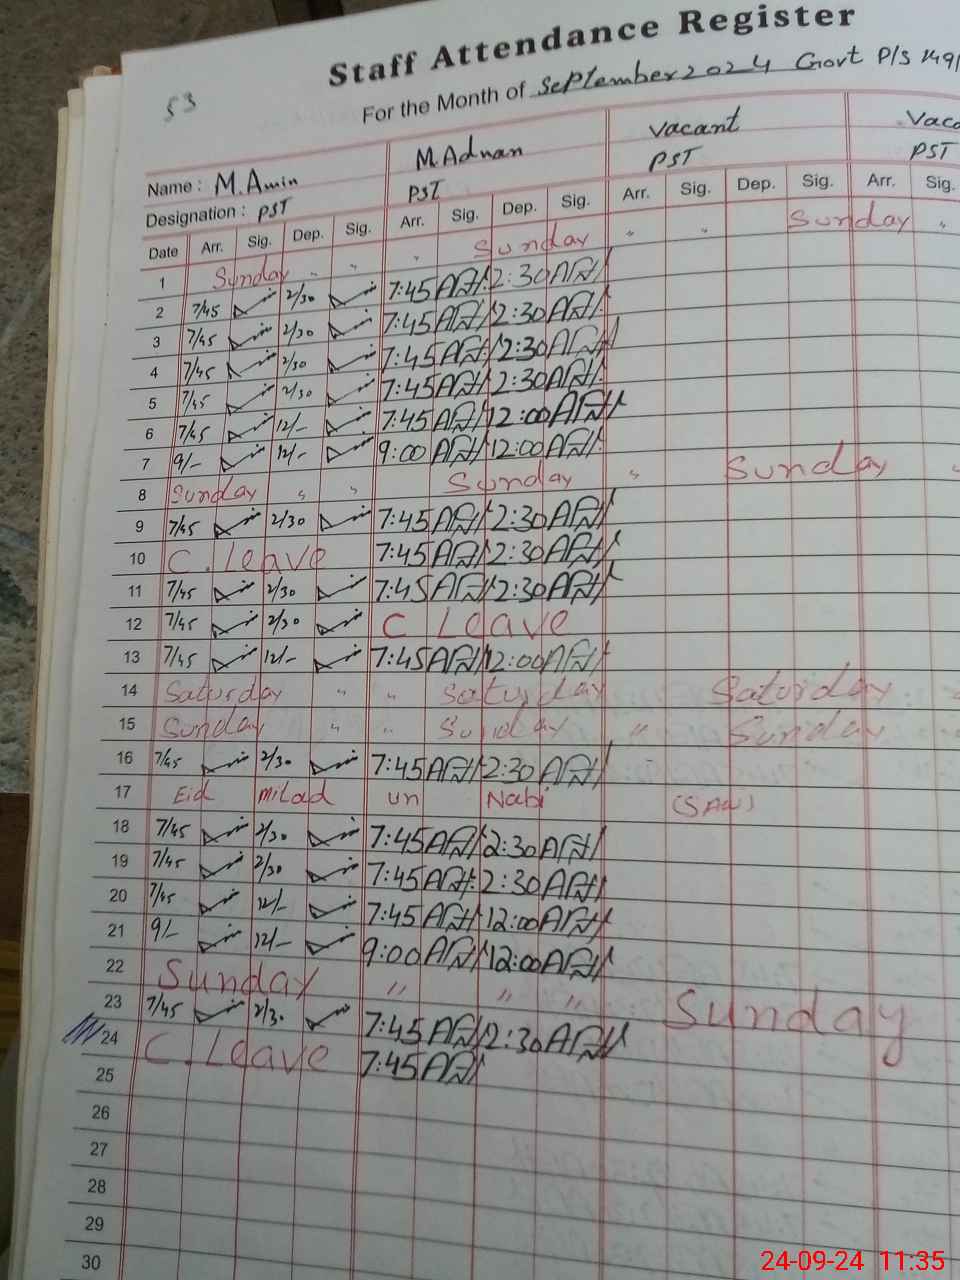 Staff Attendance Register
53
For the Month of September 2024 Govt P/S 149/
Name : M. Amin M. Adnan Vacant Vaca
Designation : PST PST PST PST
Date Arr. Sig. Dep. Sig. Arr. Sig. Dep. Sig. Arr. Sig. Dep. Sig. Arr. Sig.
1 Sunday " " " Sunday " " Sunday "
2 7/45 2/30 7:45 2:30
3 7/45 2/30 7:45 2:30
4 7/45 2/30 7:45 2:30
5 7/45 2/30 7:45 2:30
6 7/45 12/- 7:45 12:00
7 9/- 12/- 9:00 12:00
8 Sunday " " Sunday " Sunday "
9 7/45 2/30 7:45 2:30
10 C. Leave 7:45 2:30
11 7/45 2/30 7:45 2:30
12 7/45 2/30 C Leave
13 7/45 12/- 7:45 12:00
14 Saturday " " Saturday Saturday
15 Sunday " " Sunday " Sunday
16 7/45 2/30 7:45 2:30
17 Eid milad un Nabi (SAW)
18 7/45 2/30 7:45 2:30
19 7/45 2/30 7:45 2:30
20 7/45 12/- 7:45 12:00
21 9/- 12/- 9:00 12:00
22 Sunday " " " Sunday
23 7/45 2/30 7:45 2:30
24 C. Leave 7:45
25
26
27
28
29
30
24-09-24 11:35